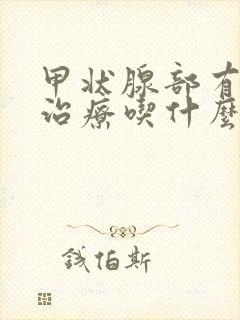 甲状腺部有
治療喫什麼
钱伯斯